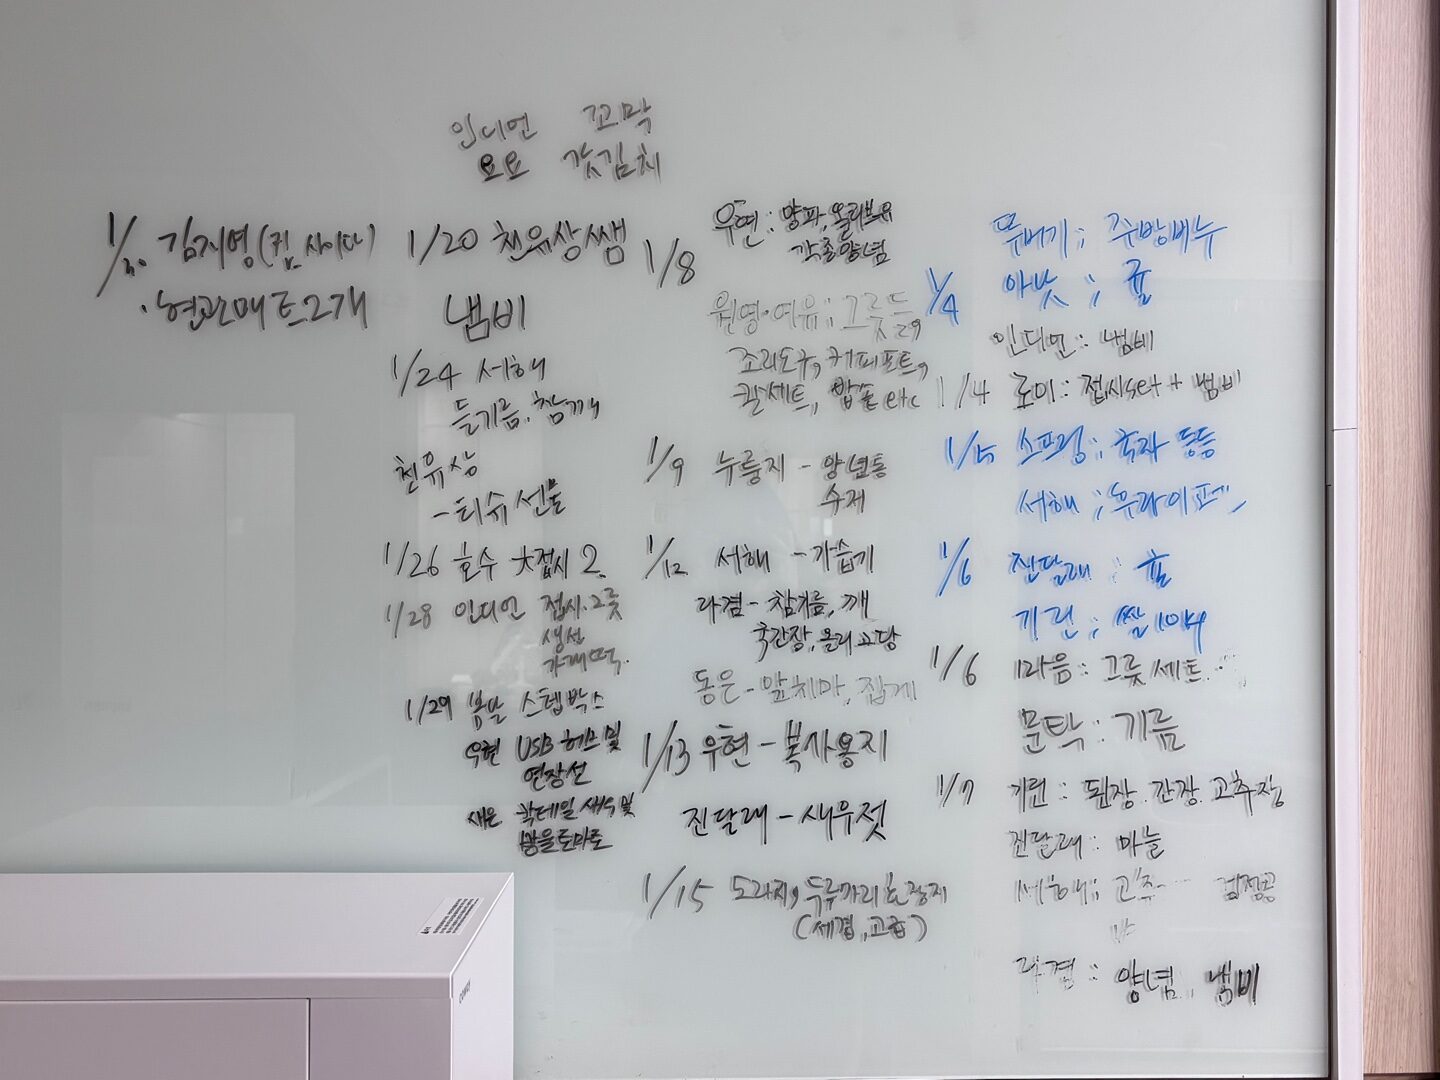 인디언 꼬막
요요 갓김치
1/30. 김지영(컵, 사이다)
· 현관매트2개
1/20 천유상쌤
냄비
1/24 서해
들기름, 참깨
천유상
- 티슈선물
1/26 호수 大접시 2
1/28 인디언 접시.그릇
생선
가래떡.
1/29 봄날 스텝박스
우현 USB 허브 및
연장선
새온 칵테일 새우 및
방울토마토
1/8 우현 : 양파, 올리브유
각종양념
원영·여유 ; 그릇들
조리도구, 커피포트,
칼세트, 밥솥 etc
1/9 누룽지 - 양념통
수저
1/12 서해 - 가습기
라겸 - 참기름, 깨
국간장, 올리고당
동은 - 앞치마, 집게
1/13 우현 - 복사용지
진달래 - 새우젓
1/15 도라지, 두루마리 화장지
(세결, 고흡)
뚜버기 ; 주방비누
1/4 아낫 ; 귤
인디언 : 냄비
1/4 로이 : 접시set + 냄비
1/5 스프링 ; 국자 등등
서해 ; 후라이팬
1/6 진달래 ; 귤
기린 ; 쌀 10kg
1/6 마음 : 그릇세트
문탁 : 기름
1/7 기린 : 된장. 간장. 고추장
진달래 : 마늘
서해 ; 고추 검정콩
라겸 : 양념, 냄비